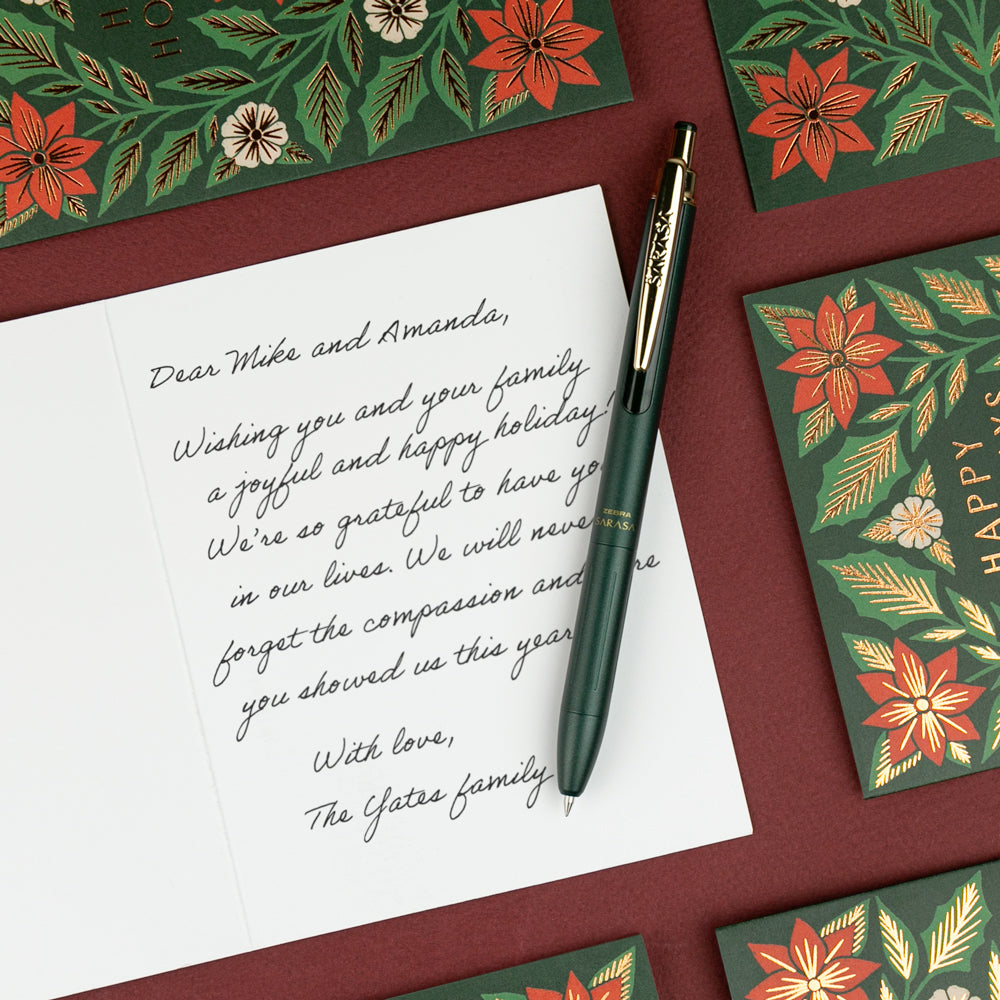 HO
H
Dear Mike and Amanda,
Wishing you and your family
a joyful and happy holiday!
We're so grateful to have yo
in our lives. We will neve
forget the compassion and re
you showed us this year
With love,
The Yates family
SARASA
ZEBRA
SARASA
HAPPY
YS